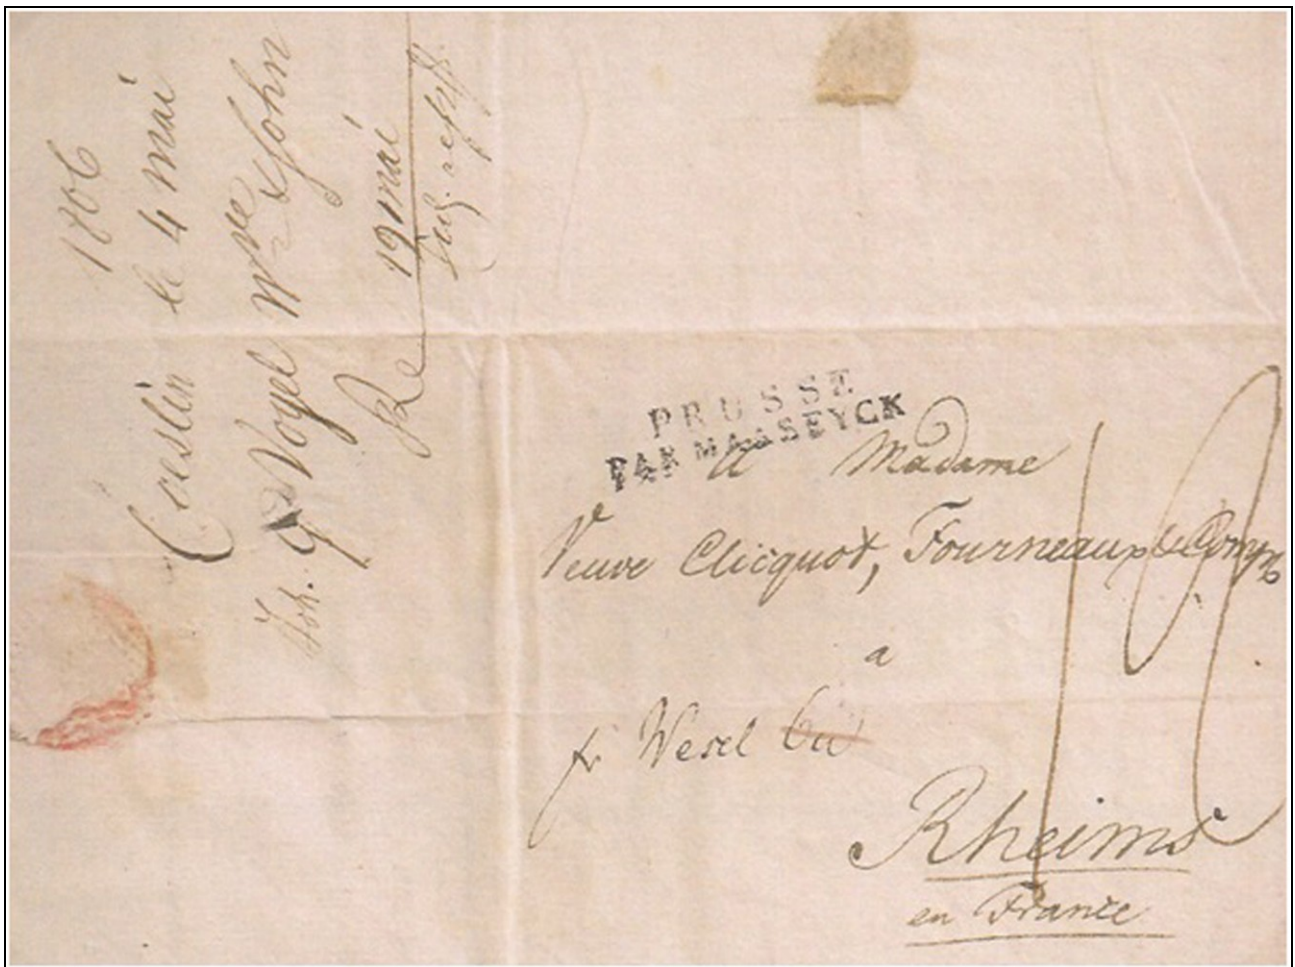 1806
Coeslin le 4 mai
Joh. G Vogel Wve & Sohn
Re 19 mai
PRUSSE
PAR MAASEYCK
a Madame
Veuve Clicquot, Fourneaux & Comp
a
fr Wesel
Rheims
en France